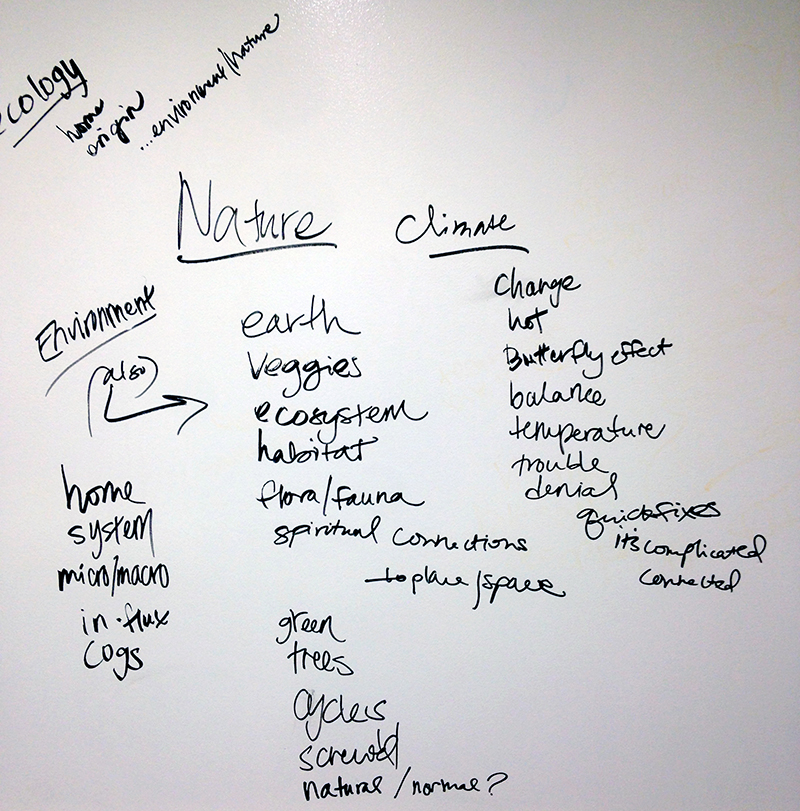 ecology
home
origin
...environment/nature
Nature
earth
Veggies
ecosystem
habitat
flora/fauna
spiritual connections
to place/space
green
trees
cycles
screw'd
natural/normal?
Climate
Change
hot
Butterfly effect
balance
temperature
trouble
denial
quick fixes
it's complicated
connected
Environment
(also)
home
system
micro/macro
in-flux
Cogs